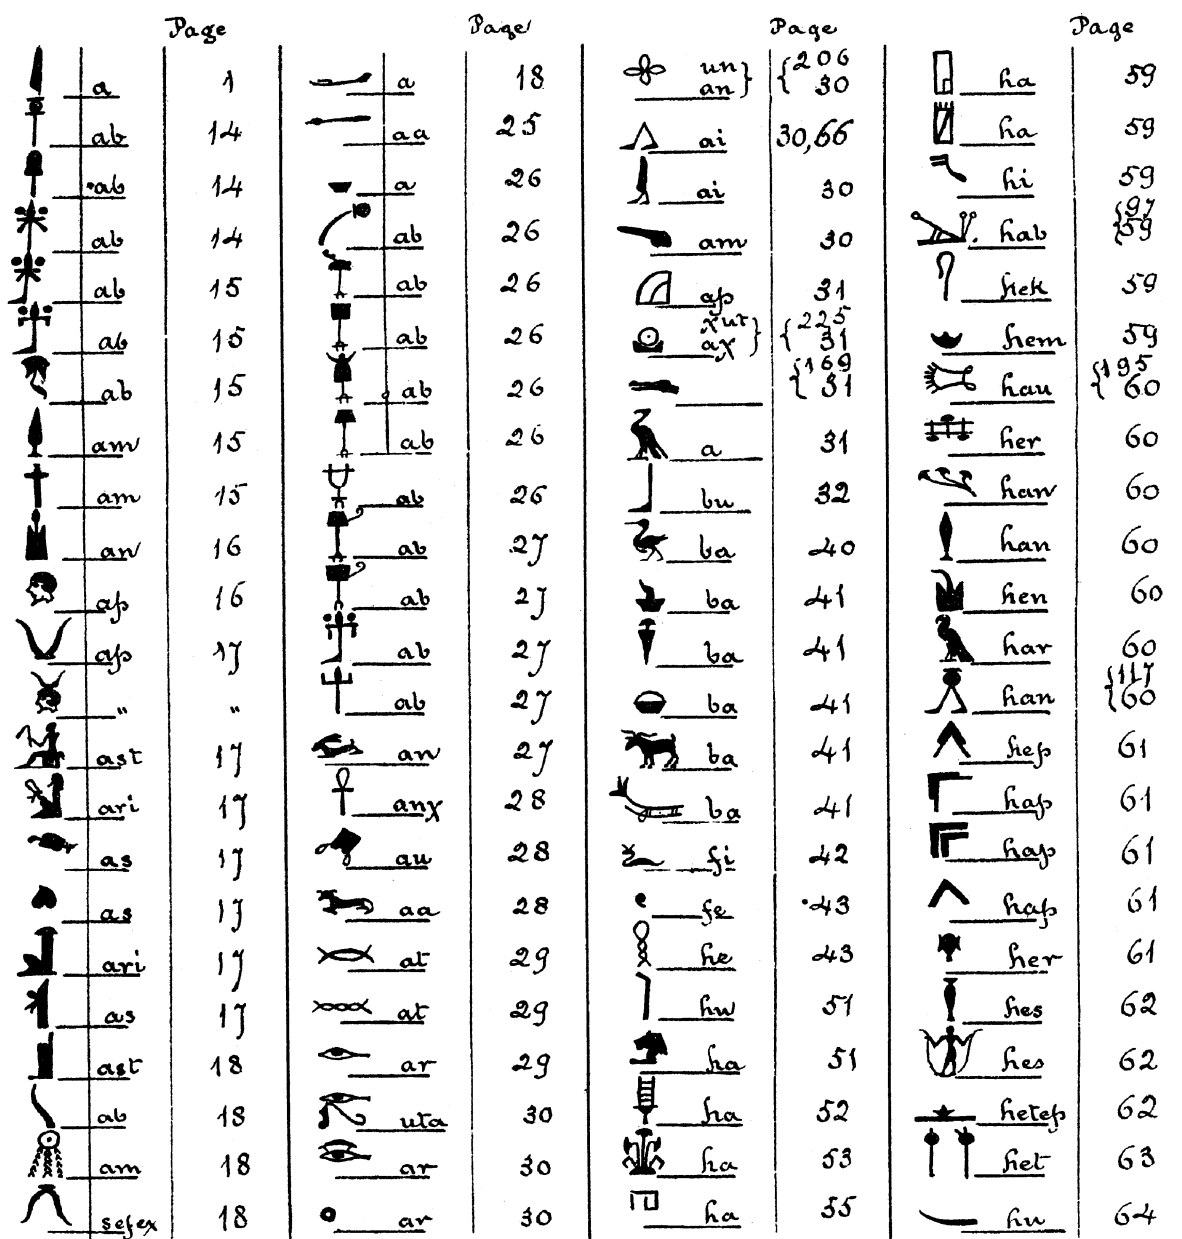 Page Page Page Page
a 1
ab 14
ab 14
ab 14
ab 15
ab 15
ab 15
am 15
am 15
an 16
ap 16
ap 17
" "
ast 17
ari 17
as 17
as 17
ari 17
as 17
ast 18
ab 18
am 18
sefex 18
a 18
aa 25
a 26
ab 26
ab 26
ab 26
ab 26
ab 26
ab 26
ab 27
ab 27
ab 27
ab 27
an 27
anχ 28
au 28
aa 28
at 29
at 29
ar 29
uta 30
ar 30
ar 30
un } { 206
an } { 30
ai 30,66
ai 30
am 30
ap 31
χut } { 225
aχ } { 31
{ 169
{ 31
a 31
bu 32
ba 40
ba 41
ba 41
ba 41
ba 41
ba 41
fi 42
fe 43
he 43
hu 51
ha 51
ha 52
ha 53
ha 55
ha 59
ha 59
hi 59
{ 97
hab { 59
hek 59
hem 59
{ 195
hau { 60
her 60
han 60
han 60
hen 60
har 60
{ 117
han { 60
hep 61
hap 61
hap 61
hap 61
her 61
hes 62
hes 62
hetep 62
het 63
hu 64